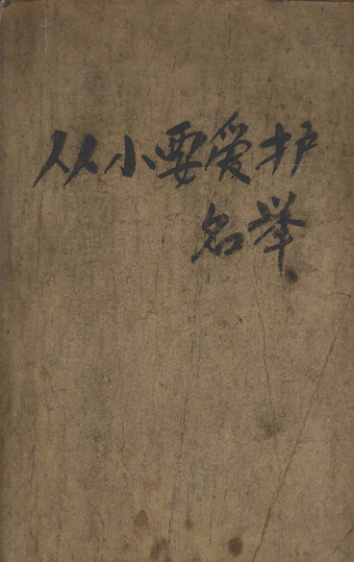 从小要爱护
名举